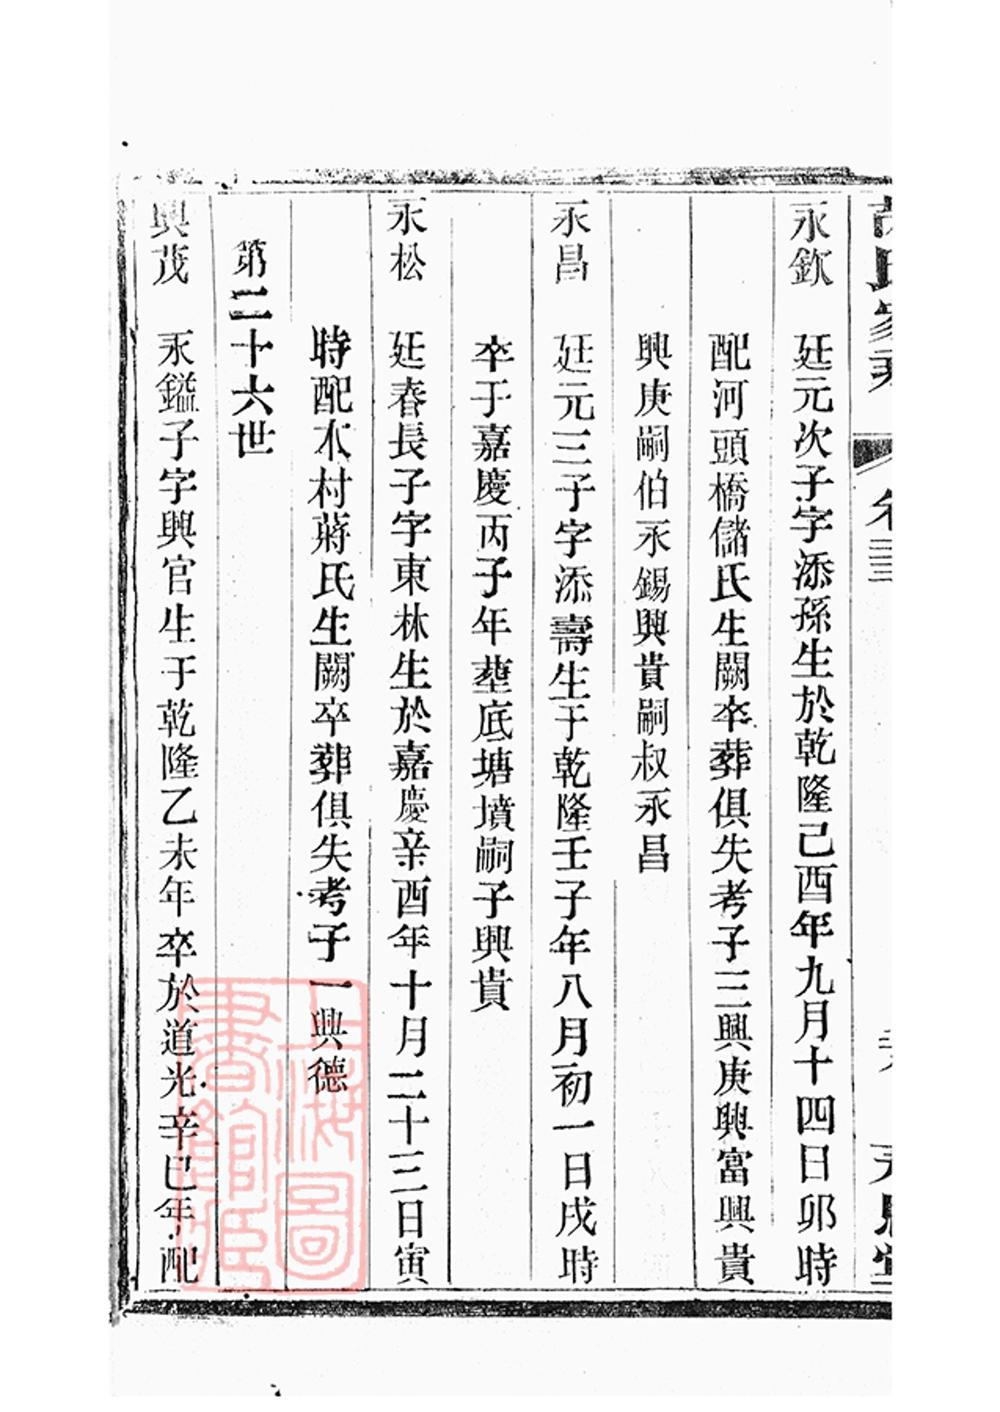 氏家乘 卷三
永欽 廷元次子字添孫生於乾隆己酉年九月十四日卯時
配河頭橋儲氏生闕卒葬俱失考子三興庚興富興貴
興庚嗣伯永錫興貴嗣叔永昌
永昌 廷元三子字添壽生于乾隆壬子年八月初一日戌時
卒于嘉慶丙子年塟底塘墳嗣子興貴
永松 廷春長子字東林生於嘉慶辛酉年十月二十三日寅
時配木村蔣氏生闕卒葬俱失考子一興德
第二十六世
興茂 永鎰子字興官生于乾隆乙未年卒於道光辛巳年配
上海圖書館藏